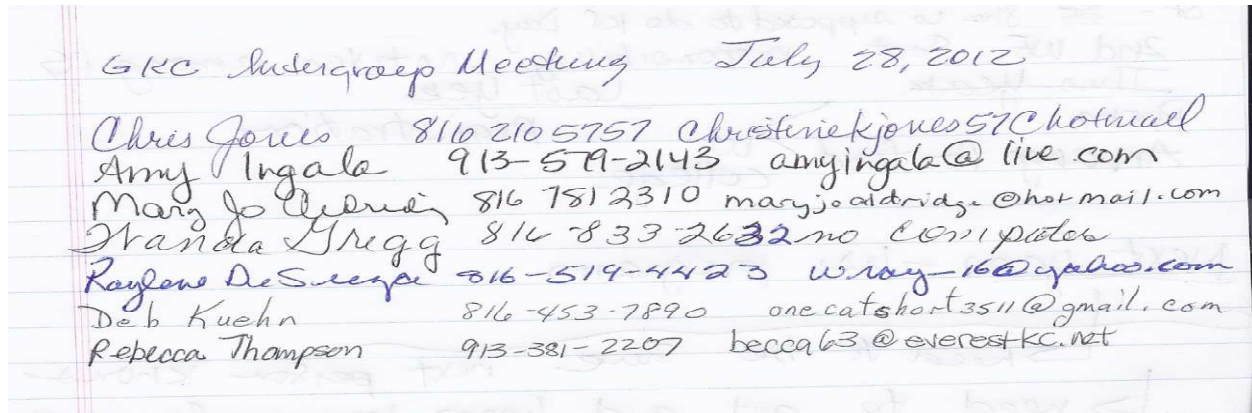 GKC Intergroup Meeting July 28, 2012
Chris Jones 816 210 5757 Christinekjones57@hotmail
Amy Ingala 913-579-2143 amyingala@live.com
Mary Jo 816 781 2310 maryjoaldridge@hotmail.com
Wanda Gregg 816-833-2632 no computer
Raylene DeSouza 816-519-4423 wray_16@yahoo.com
Deb Kuehn 816-453-7890 onecatshort3511@gmail.com
Rebecca Thompson 913-381-2207 becca63@everestkc.net